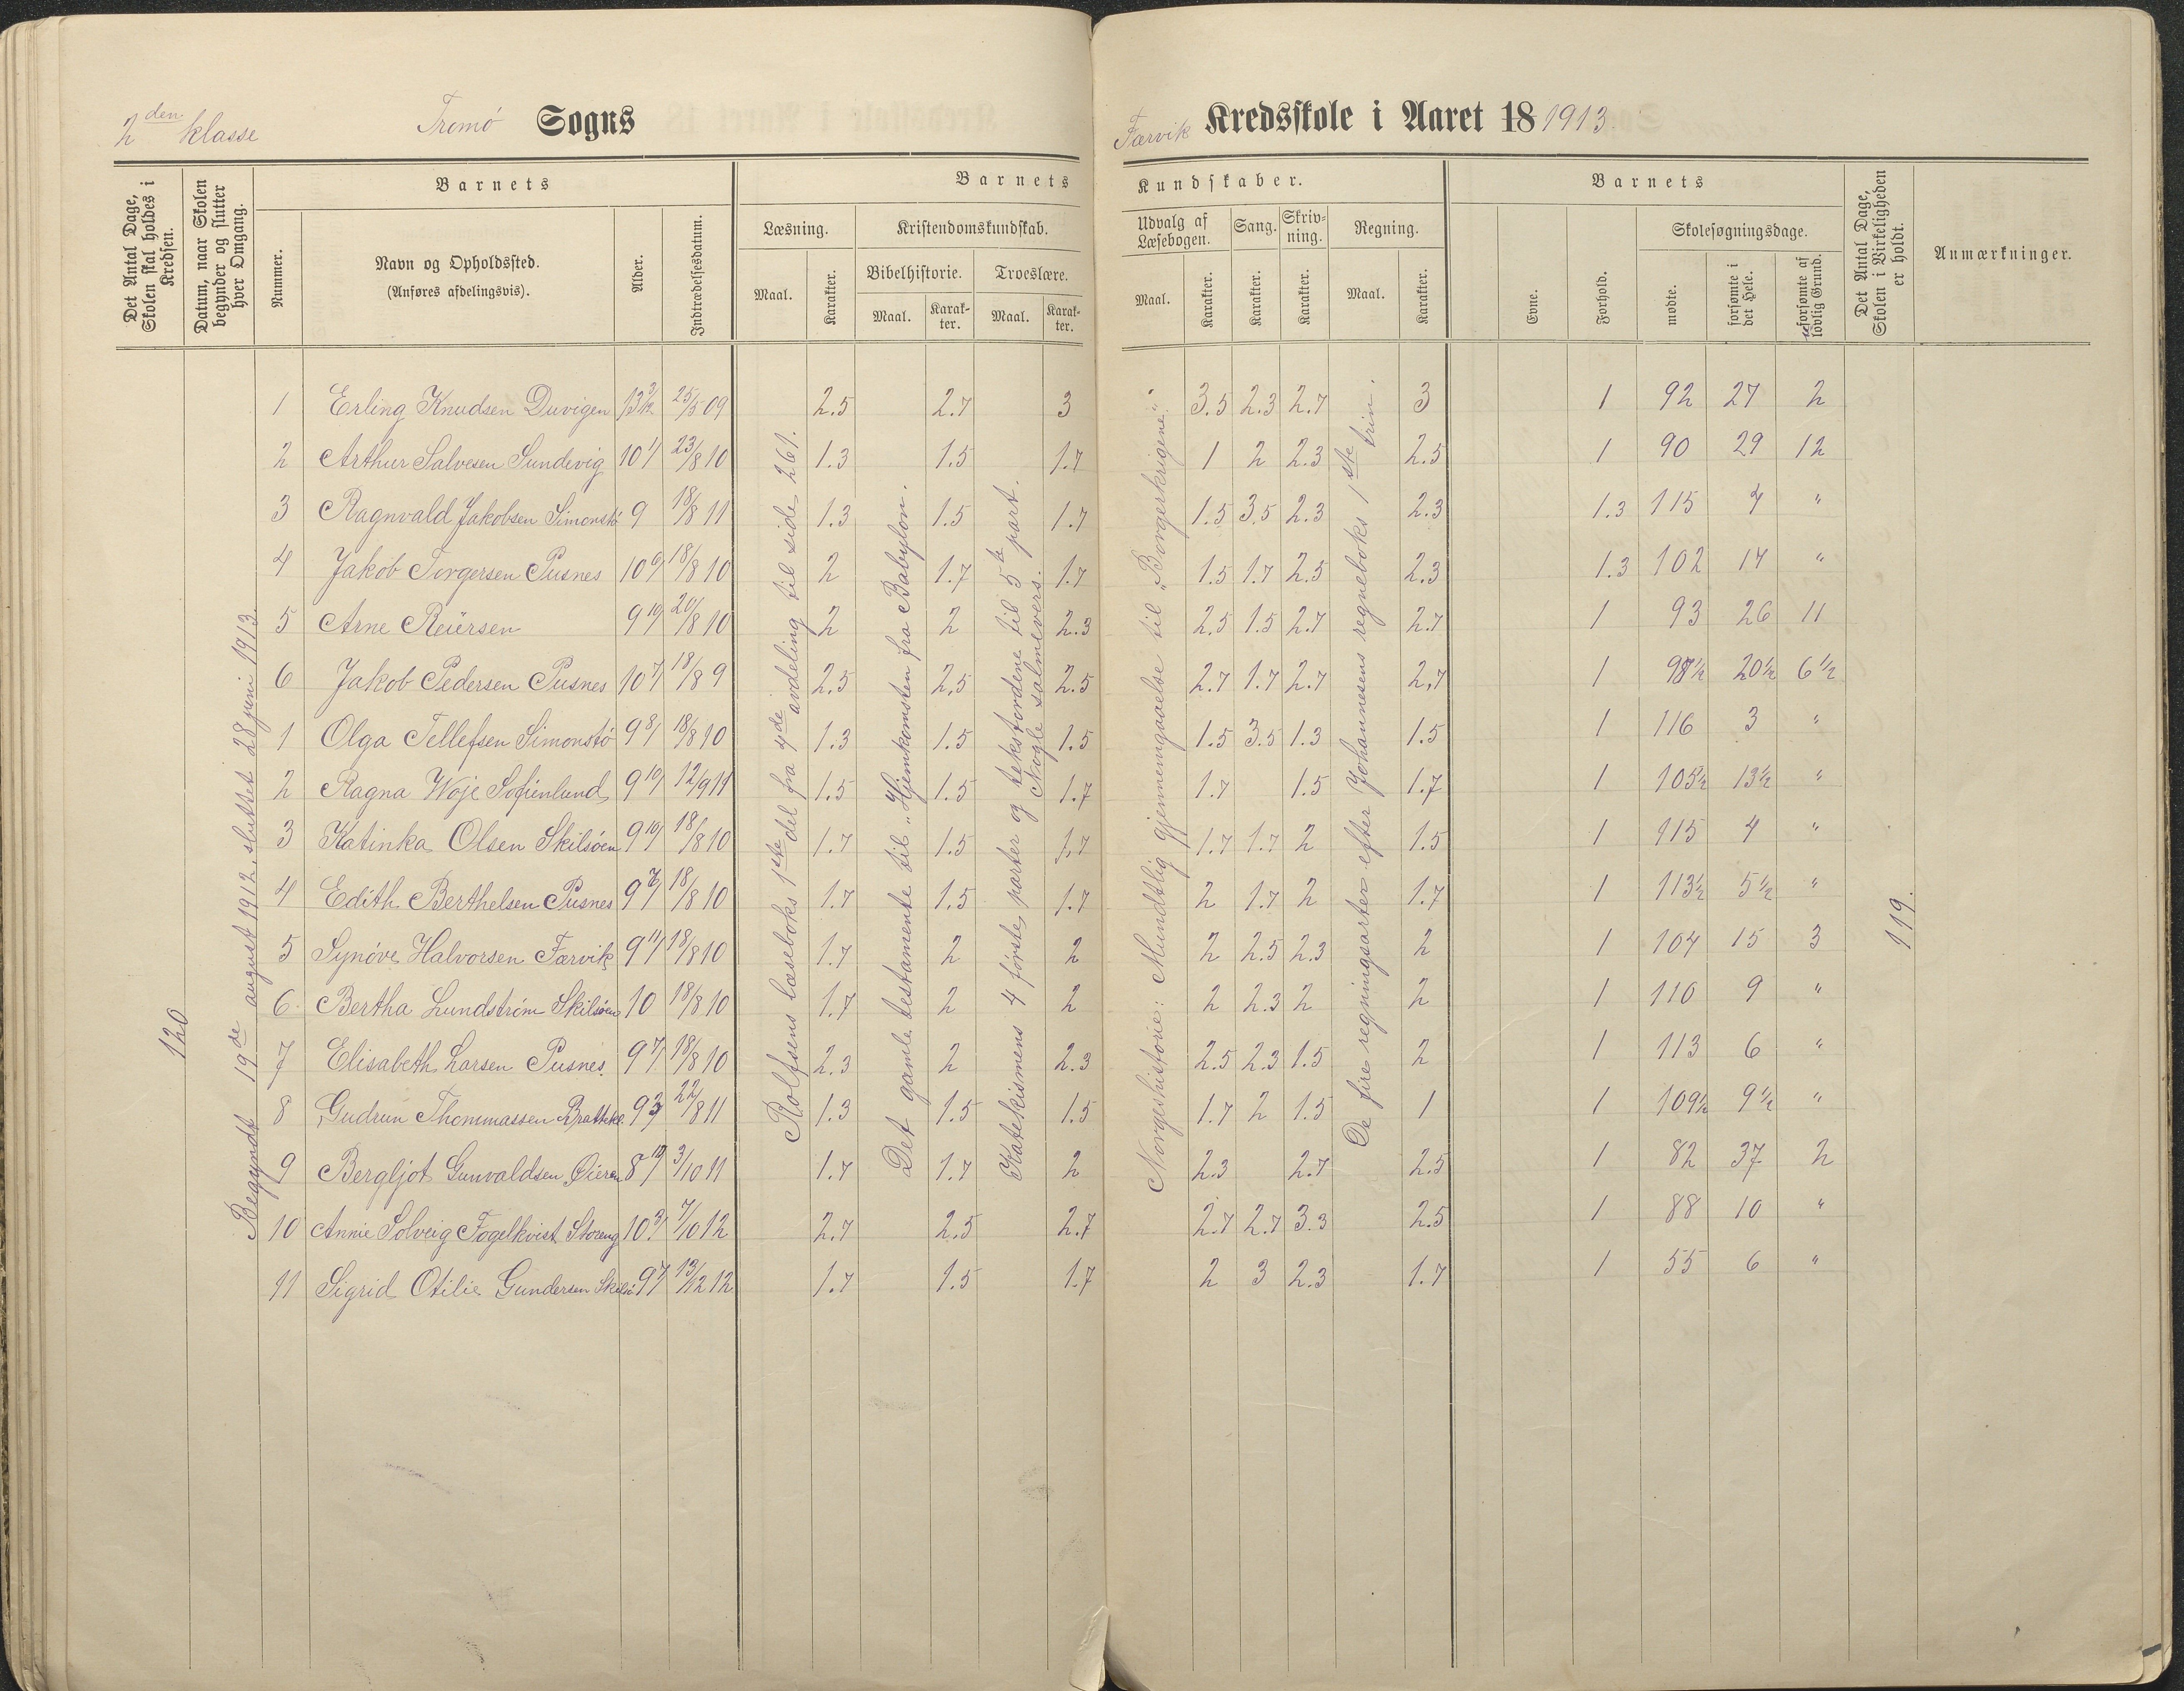 2den klasse
Tromö Sogns
Færvik Kredsskole i Aaret 18 1913.
Det Antal Dage, Skolen skal holdes i Kredsen.
Datum, naar Skolen begynder og slutter hver Omgang.
Barnets
Nummer.
Navn og Opholdssted.
(Anføres afdelingsvis).
Alder.
Indtrædelsesdatum.
Barnets Kundskaber.
Læsning.
Maal.
Karakter.
Kristendomskundskab.
Bibelhistorie.
Maal.
Karak-ter.
Troeslære.
Maal.
Karak-ter.
Udvalg af Læsebogen.
Maal.
Karakter.
Sang.
Karakter.
Skriv-ning.
Karakter.
Regning.
Maal.
Karakter.
Barnets
Evne.
Forhold.
Skolesøgningsdage.
mødte.
forsømte i det Hele.
forsømte af lovlig Grund.
Det Antal Dage, Skolen i Virkeligheden er holdt.
Anmærkninger.
120
Begyndt 19de august 1912, sluttet 28 juni 1913.
Rolfsens læseboks 1ste del fra 4de avdeling til side 261.
Det gamle testamente til "Hjemkomsten fra Babylon.
Katekismens 4 første parter og tekstordene til 5te part.
Nogle salmevers.
Norgeshistorie: Mundtlig gjennemgaaelse til "Borgerkrigene".
De fire regningsarter efter Johannesens regneboks 1ste trin.
119.
1 Erling Knudsen Duvigen 25/5 09 2.5 2.7 3 3.5 2.3 2.7 3 1 92 27 2
2 Arthur Salvesen Sundevig 23/8 10 1.3 1.5 1.7 1 2 2.3 2.5 1 90 29 12
3 Ragnvald Jakobsen Simonstö 9 18/8 11 1.3 1.5 1.7 1.5 3.5 2.3 2.3 1.3 115 4 "
4 Jakob Torgersen Pusnes 18/8 10 2 1.7 1.7 1.5 1.7 2.5 2.3 1.3 102 14 "
5 Arne Reiersen 20/8 10 2 2 2.3 2.5 1.5 2.7 2.7 1 93 26 11
6 Jakob Pedersen Pusnes 18/8 9 2.5 2.5 2.5 2.7 1.7 2.7 2.7 1 98½ 20½ 6½
1 Olga Tellefsen Simonstö 18/8 10 1.3 1.5 1.5 1.5 3.5 1.3 1.5 1 116 3 "
2 Ragna Woje Sofienlund 12/9 11 1.5 1.5 1.7 1.7 1.5 1.7 1 105½ 13½ "
3 Katinka Olsen Skilsöen 18/8 10 1.7 1.5 1.7 1.7 1.7 2 1.5 1 115 4 "
4 Edith Berthelsen Pusnes 18/8 10 1.7 1.5 1.7 2 1.7 2 1.7 1 113½ 5½ "
5 Synöve Halvorsen Færvik 18/8 10 1.7 2 2 2 2.5 2.3 2 1 104 15 3
6 Bertha Lundström Skilsöen 10 18/8 10 1.7 2 2 2 2.3 2 2 1 110 9 "
7 Elisabeth Larsen Pusnes. 18/8 10 2.3 2 2.3 2.5 2.3 1.5 2 1 113 6 "
8 Gudrun Thommassen 22/8 11 1.3 1.5 1.5 1.7 2 1.5 1 1 109½ 9½ "
9 Bergljot Gunvaldsen 3/10 11 1.7 1.7 2 2.3 2.7 2.5 1 82 37 2
10 Annie Solveig Fogelkvist Storeng 7/10 12 2.7 2.5 2.7 2.7 2.7 3.3 2.5 1 88 10 "
11 Sigrid Otilie Gundersen Skilsö 13/12 12 1.7 1.5 1.7 2 3 2.3 1.7 1 55 6 "